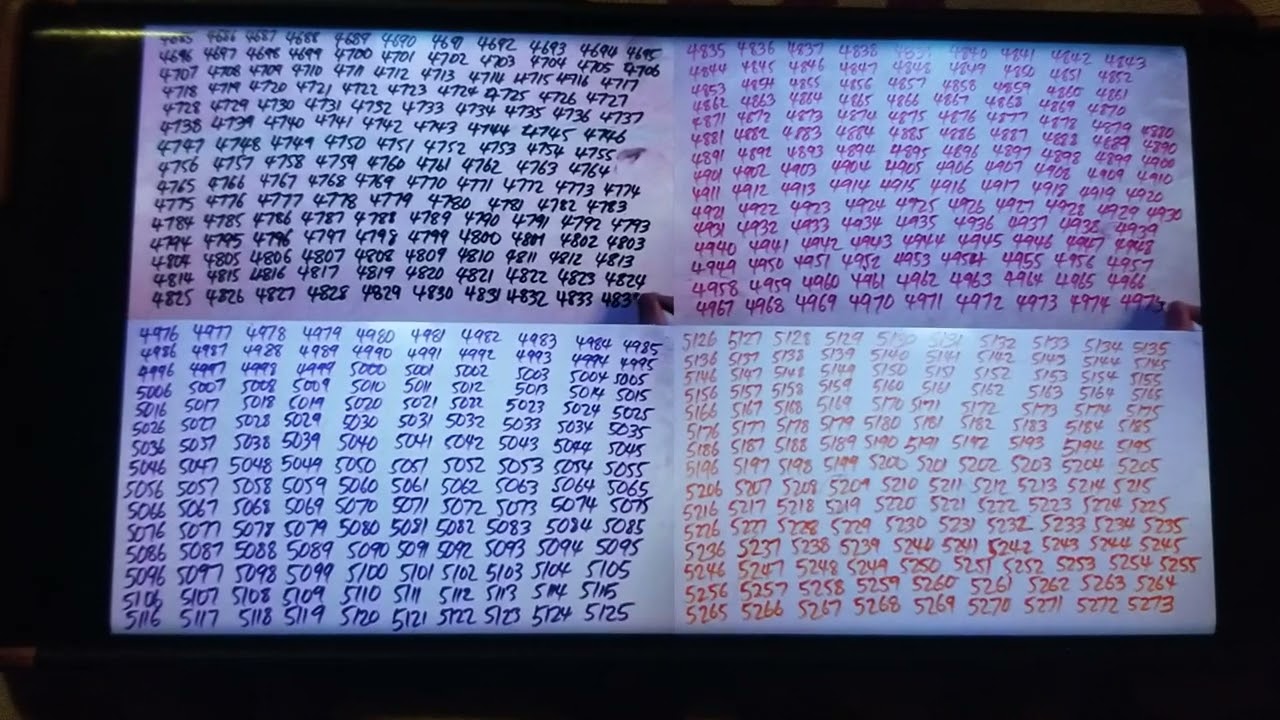 4685 4686 4687 4688 4689 4690 4691 4692 4693 4694 4695
4696 4697 4698 4699 4700 4701 4702 4703 4704 4705 4706
4707 4708 4709 4710 4711 4712 4713 4714 4715 4716 4717
4718 4719 4720 4721 4722 4723 4724 4725 4726 4727
4728 4729 4730 4731 4732 4733 4734 4735 4736 4737
4738 4739 4740 4741 4742 4743 4744 4745 4746
4747 4748 4749 4750 4751 4752 4753 4754 4755
4756 4757 4758 4759 4760 4761 4762 4763 4764
4765 4766 4767 4768 4769 4770 4771 4772 4773 4774
4775 4776 4777 4778 4779 4780 4781 4782 4783
4784 4785 4786 4787 4788 4789 4790 4791 4792 4793
4794 4795 4796 4797 4798 4799 4800 4801 4802 4803
4804 4805 4806 4807 4808 4809 4810 4811 4812 4813
4814 4815 4816 4817 4819 4820 4821 4822 4823 4824
4825 4826 4827 4828 4829 4830 4831 4832 4833
4835 4836 4837 4838 4839 4840 4841 4842 4843
4844 4845 4846 4847 4848 4849 4850 4851 4852
4853 4854 4855 4856 4857 4858 4859 4860 4861
4862 4863 4864 4865 4866 4867 4868 4869 4870
4871 4872 4873 4874 4875 4876 4877 4878 4879 4880
4881 4882 4883 4884 4885 4886 4887 4888 4889 4890
4891 4892 4893 4894 4895 4896 4897 4898 4899 4900
4901 4902 4903 4904 4905 4906 4907 4908 4909 4910
4911 4912 4913 4914 4915 4916 4917 4918 4919 4920
4921 4922 4923 4924 4925 4926 4927 4928 4929 4930
4931 4932 4933 4934 4935 4936 4937 4938 4939
4940 4941 4942 4943 4944 4945 4946 4947 4948
4949 4950 4951 4952 4953 4954 4955 4956 4957
4958 4959 4960 4961 4962 4963 4964 4965 4966
4967 4968 4969 4970 4971 4972 4973 4974 4975
4976 4977 4978 4979 4980 4981 4982 4983 4984 4985
4986 4987 4988 4989 4990 4991 4992 4993 4994 4995
4996 4997 4998 4999 5000 5001 5002 5003 5004 5005
5006 5007 5008 5009 5010 5011 5012 5013 5014 5015
5016 5017 5018 5019 5020 5021 5022 5023 5024 5025
5026 5027 5028 5029 5030 5031 5032 5033 5034 5035
5036 5037 5038 5039 5040 5041 5042 5043 5044 5045
5046 5047 5048 5049 5050 5051 5052 5053 5054 5055
5056 5057 5058 5059 5060 5061 5062 5063 5064 5065
5066 5067 5068 5069 5070 5071 5072 5073 5074 5075
5076 5077 5078 5079 5080 5081 5082 5083 5084 5085
5086 5087 5088 5089 5090 5091 5092 5093 5094 5095
5096 5097 5098 5099 5100 5101 5102 5103 5104 5105
5106 5107 5108 5109 5110 5111 5112 5113 5114 5115
5116 5117 5118 5119 5120 5121 5122 5123 5124 5125
5126 5127 5128 5129 5130 5131 5132 5133 5134 5135
5136 5137 5138 5139 5140 5141 5142 5143 5144 5145
5146 5147 5148 5149 5150 5151 5152 5153 5154 5155
5156 5157 5158 5159 5160 5161 5162 5163 5164 5165
5166 5167 5168 5169 5170 5171 5172 5173 5174 5175
5176 5177 5178 5179 5180 5181 5182 5183 5184 5185
5186 5187 5188 5189 5190 5191 5192 5193 5194 5195
5196 5197 5198 5199 5200 5201 5202 5203 5204 5205
5206 5207 5208 5209 5210 5211 5212 5213 5214 5215
5216 5217 5218 5219 5220 5221 5222 5223 5224 5225
5226 5227 5228 5229 5230 5231 5232 5233 5234 5235
5236 5237 5238 5239 5240 5241 5242 5243 5244 5245
5246 5247 5248 5249 5250 5251 5252 5253 5254 5255
5256 5257 5258 5259 5260 5261 5262 5263 5264
5265 5266 5267 5268 5269 5270 5271 5272 5273